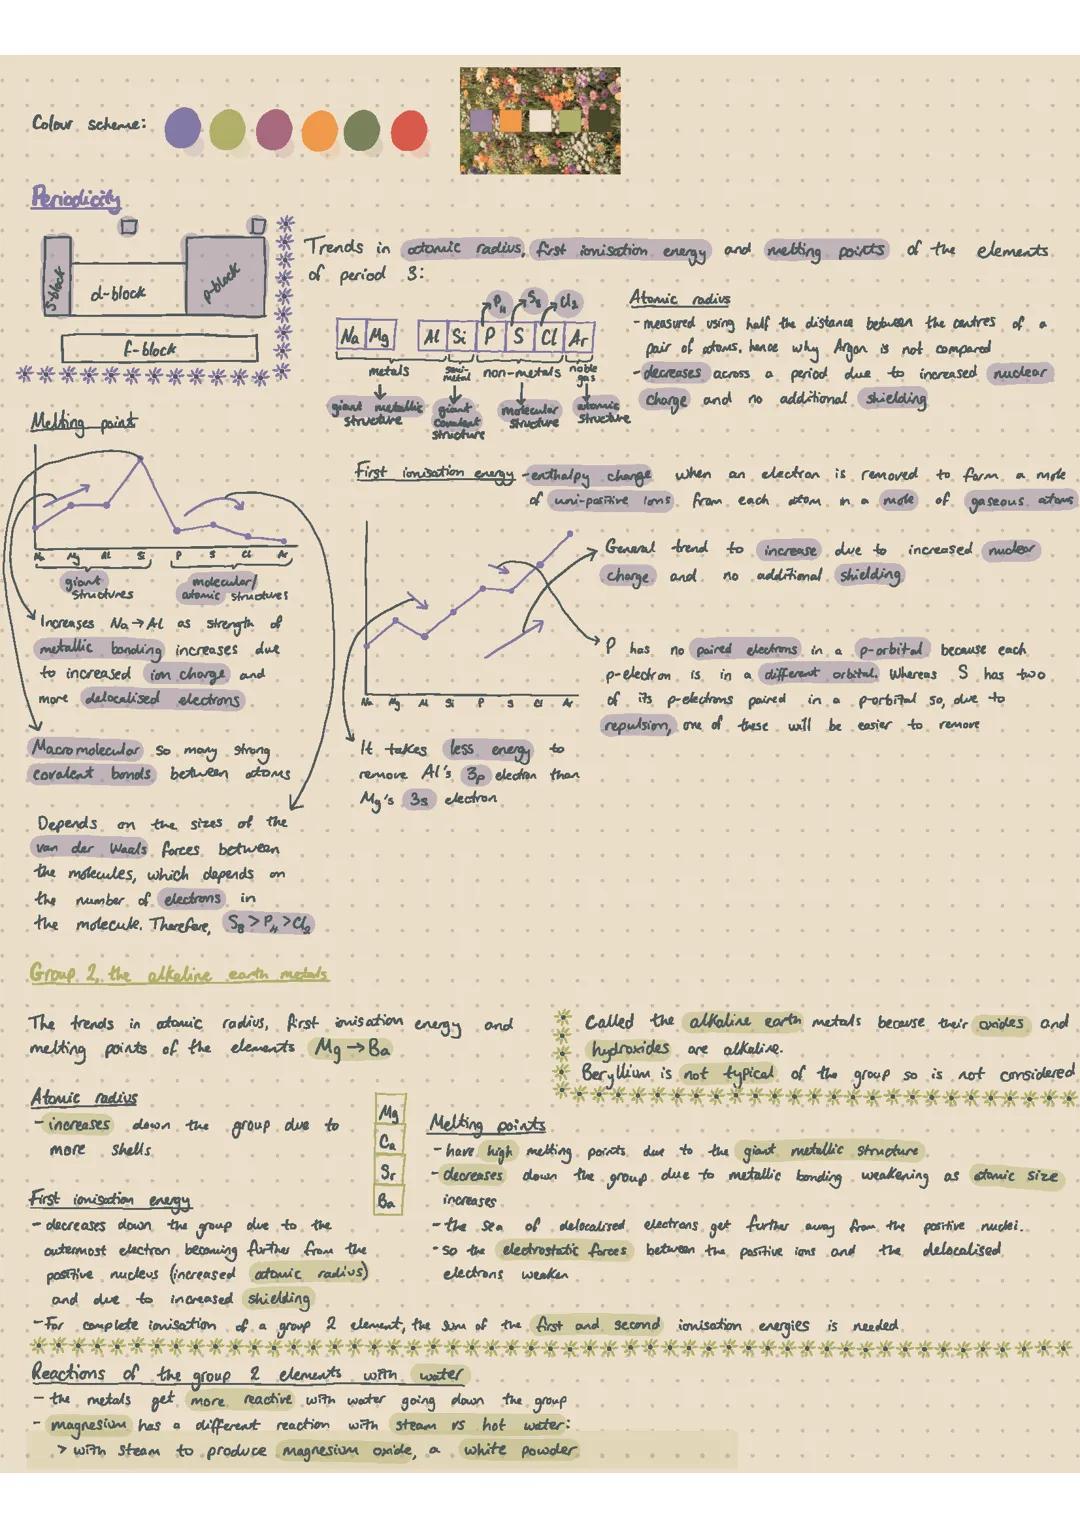 Colour scheme:
Periodicity
s-block
d-block
p-block
f-block
Trends in atomic radius, first ionisation energy and melting points of the elements
of period 3:
P4 S8 Cl2
Na Mg Al Si P S Cl Ar
metals semi-metal non-metals noble gas
giant metallic structure
giant covalent structure
molecular structure
atomic structure
Atomic radius
- measured using half the distance between the centres of a
pair of atoms, hence why Argon is not compared
- decreases across a period due to increased nuclear
charge and no additional shielding
Melting point
Na Mg Al Si P S Cl Ar
giant structures
molecular/ atomic structures
Increases Na → Al as strength of
metallic bonding increases due
to increased ion charge and
more delocalised electrons
Macromolecular so many strong
covalent bonds between atoms
Depends on the sizes of the
van der Waals forces between
the molecules, which depends on
the number of electrons in
the molecule. Therefore, S8 > P4 > Cl2
First ionisation energy - enthalpy change when an electron is removed to form a mole
of uni-positive ions from each atom in a mole of gaseous atoms
Na Mg Al Si P S Cl Ar
General trend to increase due to increased nuclear
charge and no additional shielding
P has no paired electrons in a p-orbital because each
p-electron is in a different orbital. Whereas S has two
of its p-electrons paired in a p-orbital so, due to
repulsion, one of these will be easier to remove
It takes less energy to
remove Al's 3p electron than
Mg's 3s electron
Group 2, the alkaline earth metals
The trends in atomic radius, first ionisation energy and
melting points of the elements Mg → Ba
Called the alkaline earth metals because their oxides and
hydroxides are alkaline.
Beryllium is not typical of the group so is not considered
Atomic radius
- increases down the group due to
more shells
Mg
Ca
Sr
Ba
Melting points
- have high melting points due to the giant metallic structure
- decreases down the group due to metallic bonding weakening as atomic size
increases
- the sea of delocalised electrons get further away from the positive nuclei.
- so the electrostatic forces between the positive ions and the delocalised
electrons weaken
First ionisation energy
- decreases down the group due to the
outermost electron becoming further from the
positive nucleus (increased atomic radius)
and due to increased shielding
- For complete ionisation of a group 2 element, the sum of the first and second ionisation energies is needed
Reactions of the group 2 elements with water
- the metals get more reactive with water going down the group
- magnesium has a different reaction with steam vs hot water:
> with steam to produce magnesium oxide, a white powder